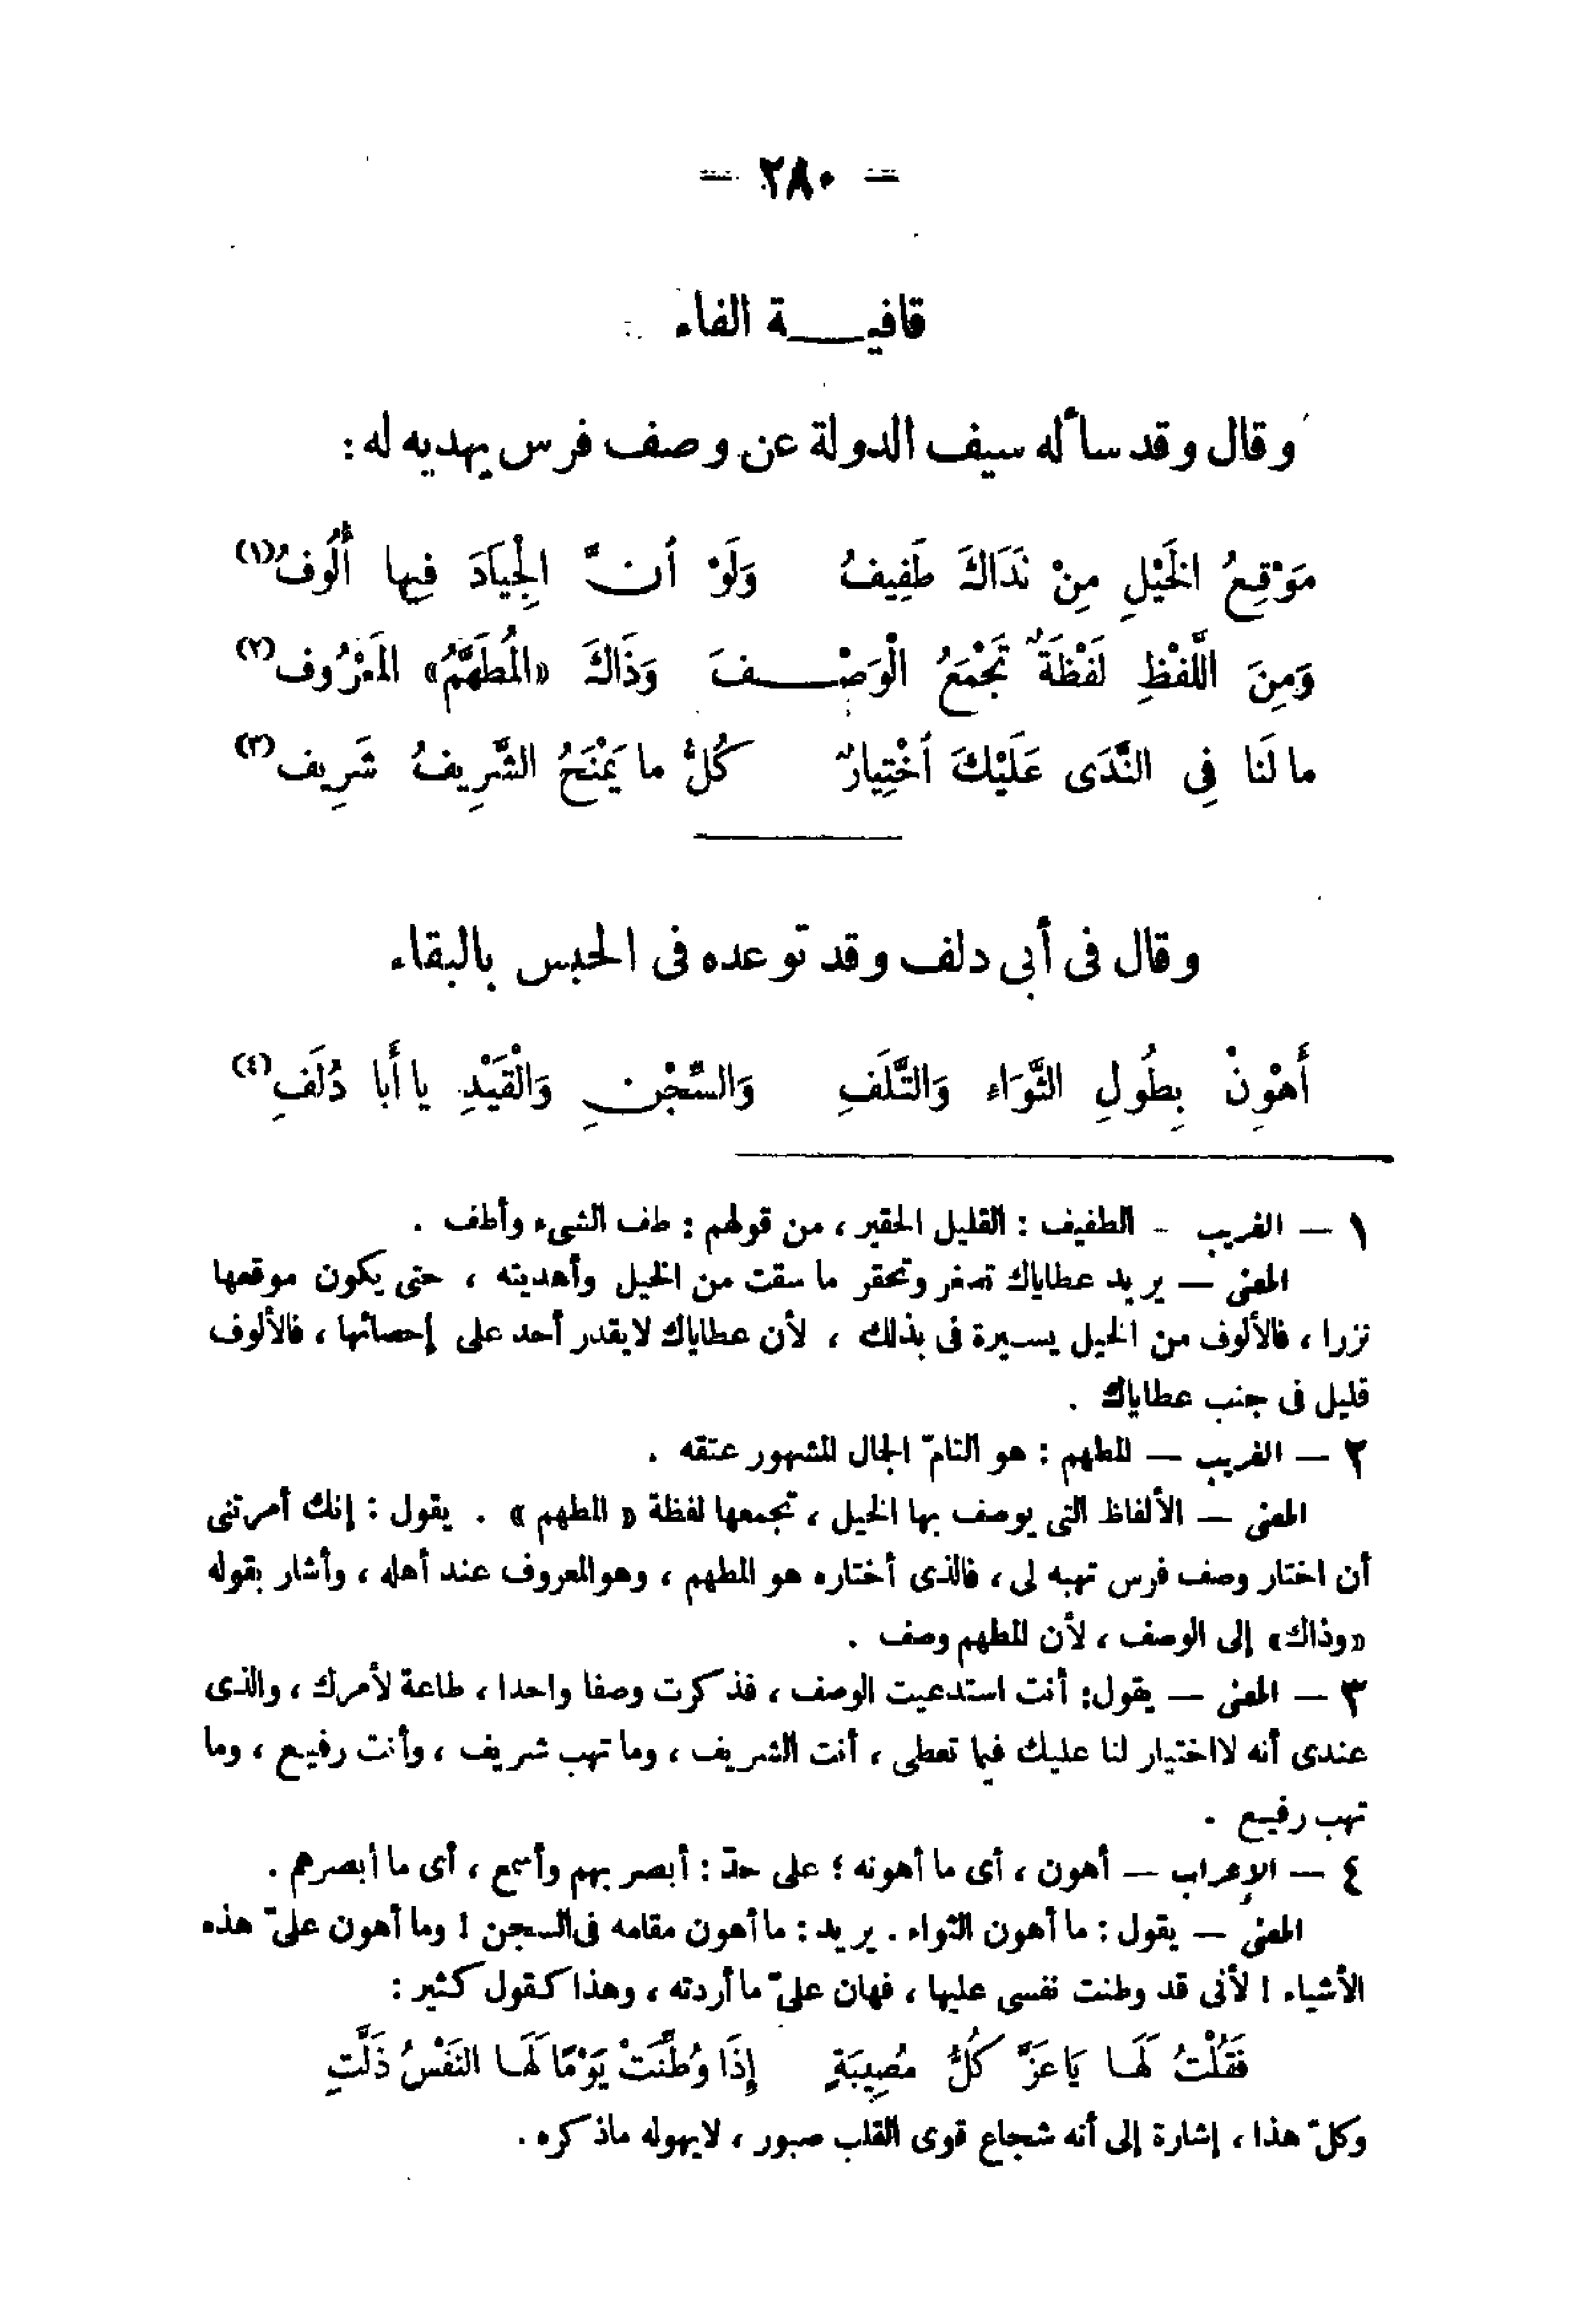 — ٢٨٠ —
قافيــــة الفاء
وقال وقد سأله سيف الدولة عن وصف فرس يهديه له :
مَوْقِعُ الخَيْلِ مِنْ نَدَاكَ طَفِيفُ وَلَوْ أنَّ الْجِيَادَ فِيها أُلُوفُ(١)
وَمِنَ اللَّفْظِ لَفْظَةٌ تَجْمَعُ الْوَصْــــفَ وَذَاكَ «المُطَهَّمُ» المَعْرُوف(٢)
ما لَنا فِى النَّدَى عَلَيْكَ اُخْتِيارٌ كُلُّ ما يَمْنَحُ الشَّرِيفُ شَرِيف(٣)
وقال فى أبى دلف وقد توعده فى الحبس بالبقاء
أَهْوِنْ بِطُولِ الثَّوَاءِ وَالتَّلَفِ وَالسِّجْنِ وَالْقَيْدِ يا أَبا دُلَفِ(٤)
١ — الغريب - الطفيف : القليل الحقير ، من قولهم : طف الشىء وأطف .
المعنى — يريد عطاياك تصغر وتحقر ما سقت من الخيل وأهديته ، حتى يكون موقعها
نزرا ، فالألوف من الخيل يسيرة فى بذلك ، لأن عطاياك لايقدر أحد على إحصائها ، فالألوف
قليل فى جنب عطاياك .
٢ — الغريب — المطهم : هو التامّ الجمال المشهور عتقه .
المعنى — الألفاظ التى يوصف بها الخيل ، تجمعها لفظة « المطهم » . يقول : إنك أمرتنى
أن اختار وصف فرس تهبه لى ، فالذى أختاره هو المطهم ، وهوالمعروف عند أهله ، وأشار بقوله
«وذاك» إلى الوصف ، لأن المطهم وصف .
٣ — المعنى — يقول: أنت استدعيت الوصف ، فذكرت وصفا واحدا ، طاعة لأمرك ، والذى
عندى أنه لااختيار لنا عليك فيما تعطى ، أنت الشريف ، وما تهب شريف ، وأنت رفيع ، وما
تهب رفيع .
٤ — الإعراب — أهون ، أى ما أهونه ؛ على حدّ : أبصر بهم وأسمع ، أى ما أبصرهم .
المعنى — يقول : ما أهون الثواء . يريد : ما أهون مقامه فى السجن ! وما أهون علىّ هذه
الأشياء ! لأنى قد وطنت نفسى عليها ، فهان علىّ ما أردته ، وهذا كقول كثير :
فَقُلْتُ لَهَا يَا عَزَّ كُلُّ مُصِيبَةٍ إِذَا وُطِّنَتْ يَوْمًا لَهَا النَفْسُ ذَلَّتِ
وكلّ هذا ، إشارة إلى أنه شجاع قوى القلب صبور ، لايهوله ماذكره .